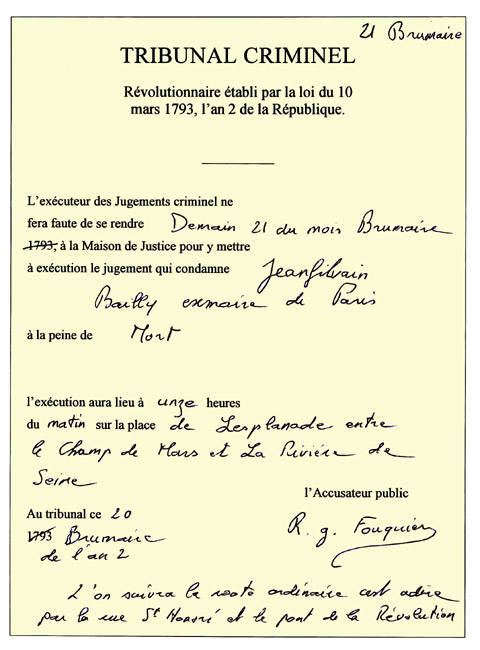 21 Brumaire
TRIBUNAL CRIMINEL
Révolutionnaire établi par la loi du 10
mars 1793, l'an 2 de la République.
L'exécuteur des Jugements criminel ne
fera faute de se rendre Demain 21 du mois Brumaire
1793, à la Maison de Justice pour y mettre
à exécution le jugement qui condamne JeanSilvain
Bailly exmaire de Paris
à la peine de Mort
l'exécution aura lieu à unze heures
du matin sur la place de Lesplanade entre
le Champ de Mars et La Rivière de
Seine
l'Accusateur public
Au tribunal ce 20
1793 Brumaire
de l'an 2
R. g. Fouquier
L'on suivra la route ordinaire cest adire
par la rue St Honoré et le pont de la Révolution